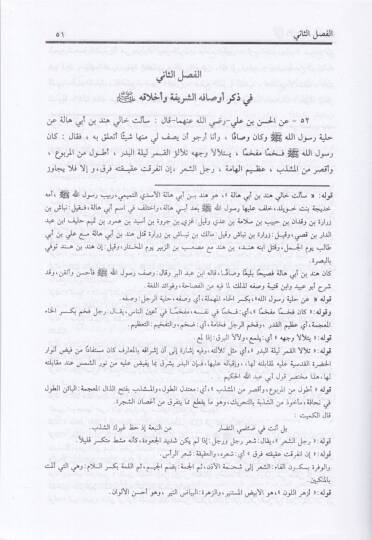 الفصل الثاني ٥٦
الفصل الثاني
في ذكر أوصافه الشريفة وأخلاقه ﷺ
٥٢ - عن الحسن بن علي-رضي الله عنهما-قال : سألت خالي هند بن أبي هالة عن
حلية رسول الله ﷺ وكان وصافًا ، وأنا أرجو أن يصف لي منها شيئًا أتعلق به ، فقال : كان
رسول الله ﷺ فخمًا مفخمًا ، يتلألأ وجهه تلألؤ القمر ليلة البدر ، أطول من المربوع ،
وأقصر من المشذب ، عظيم الهامة ، رجل الشعر ، إن انفرقت عقيقته فرق، و إلا فلا يجاوز
قوله: « سألت خالي هند بن أبي هالة » ، هو هند بن أبي هالة الأسدي التميمي، ربيب رسول الله ﷺ ، أمه
خديجة بنت خويلد، خلف عليها رسول الله ﷺ بعد أبي هالة، واختلف في اسم أبي هالة، فقيل: نباش بن
زرارة بن وقدان بن حبيب بن سلامة بن عدي وقيل غزي بن جروة بن أسيد بن عمرو بن تميم حليف ابن عبد
الدار بن قصي، وقيل: زرارة بن نباش وقيل مالك بن نباش بن زرارة قتل هند بن أبي هالة مع علي بن أبي
طالب يوم الجمل، وقتل ابنه هند بن هند مع مصعب بن الزبير يوم المختار، وقيل: إن هند بن هند توفي
بالبصرة.
كان هند بن أبي هالة فصيحًا بليغًا وصافًا، قاله ابن عبد البر وقال: وصف رسول الله ﷺ فأحسن وأتقن، وقد
شرح أبو عبيد وابن قتيبة وصفه لذلك لما فيه من الفصاحة، وفوائد اللغة.
قوله « عن حلية رسول الله»، بكسر الحاء المهملة، أي وصفه، حلية الرجل: وصفه.
وقوله: « كان فخمًا مفخمًا »، أي: فخمًا في نفسه، مفخمًا في أعين الناس، يقال رجل فخم بكسر الخاء
المعجمة، أي عظيم القدر، وفخم الرجل فخامة، أي: ضخم، والتفخيم: التعظيم.
قوله: « يتلألأ وجهه » أي: يلمع، ولألأ البرق: إذا لمع
قوله: « تلألؤ القمر ليلة البدر » ، أي مثل تلألئه، وفيه إشارة إلى أن إشراقه بالمعارف كان مستفادًا من فيض أنوار
الحضرة القدسية عليه لمقابلته لها، وإقباله عليها، فإن البدر يشرق بما يفيض عليه من نور الشمس عند مقابلته
لها، هذا مختصر قول أبي عبد الله الحكيم.
قوله « أطول من المربوع، وأقصر من المشذب » ، أي: معتدل الطول، والمشذب بفتح الذال المعجمة: البائن الطول
في نحافة، مأخوذ من الشذبة بالتحريك، وهو ما يقطع مما يتفرق من أغصان الشجرة.
قال الكميت :
بل أنت في ضئضئ النضار من النبعة إذ حظ غيرك الشذب.
قوله: « رجل الشعر » ، يقال: شعر رجل ورجل: إذا لم يكن شديد الجعودة، كأنه مشط متكسر قليلاً.
قوله: « إن انفرقت عقيقته فرق » أي: شعره، والعقيقة: شعر الرأس.
والوفرة بسكون الفاء: الشعر إلى شحمة الأذن، ثم الجمة: بضم الجيم، ثم اللمة بكسر اللام: وهي التي ألمت
بالمنكبين.
قوله: « أزهر اللون » ، هو الأبيض المستنير، والزهرة: البياض النير، وهو أحسن الألوان.